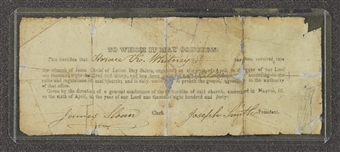 TO WHOM IT MAY CONCERN:
This certifies that Horace K. Whitney has been received into
the church of Jesus Christ of Latter Day Saints, organized on the sixth of April, in the year of our Lord
one thousand eight hundred and thirty, and has been ordained
rules and regulations of said church; and is duly authorized to preach the gospel, agreeably to the authority
of that office.
Given by the direction of a general conference of the authorities of said church, assembled in Nauvoo, Ill.
the sixth of April, in the year of our Lord one thousand eight hundred and forty
James Sloan Clerk. Joseph Smith President.